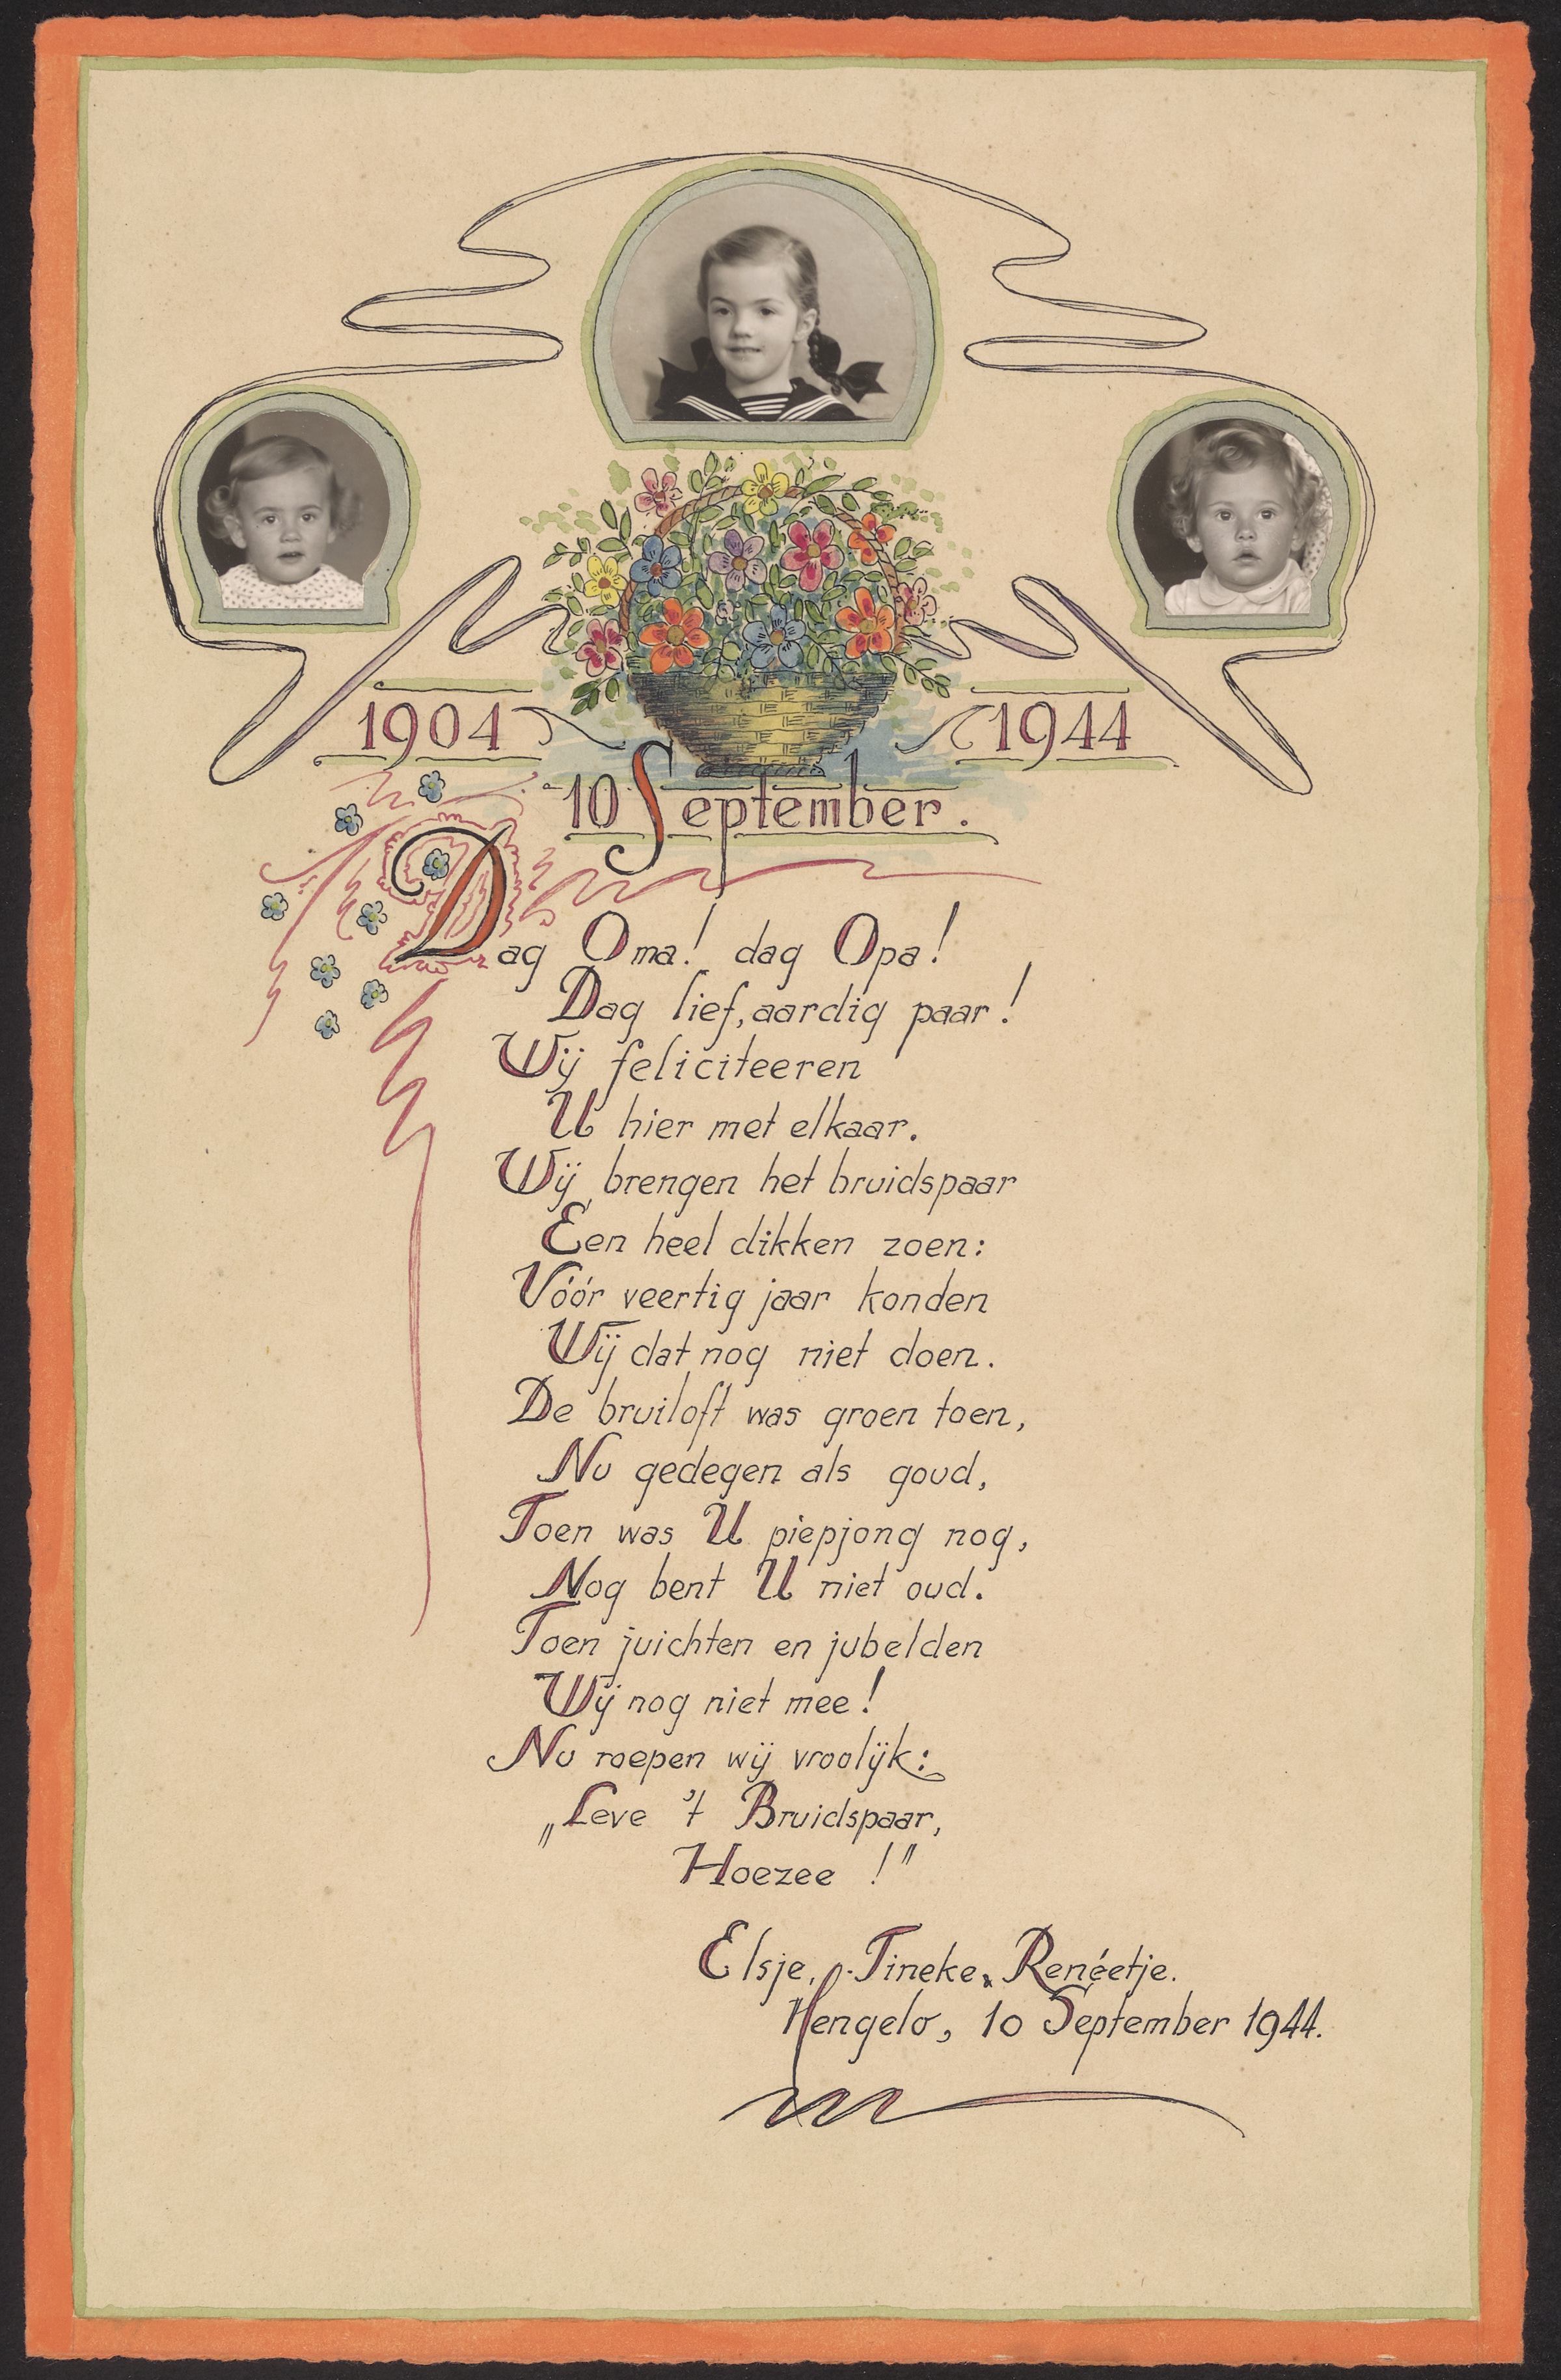 1904 1944
10 September.
Dag Oma! dag Opa!
Dag lief, aardig paar!
Wij feliciteeren
U hier met elkaar.
Wij brengen het bruidspaar
Een heel dikken zoen:
Vóór veertig jaar konden
Wij dat nog niet doen.
De bruiloft was groen toen,
Nu gedegen als goud,
Toen was U piepjong nog,
Nog bent U niet oud.
Toen juichten en jubelden
Wij nog niet mee!
Nu roepen wij vroolijk:
„Leve 't Bruidspaar,
Hoezee!"
Elsje, Tineke, Renéetje.
Hengelo, 10 September 1944.